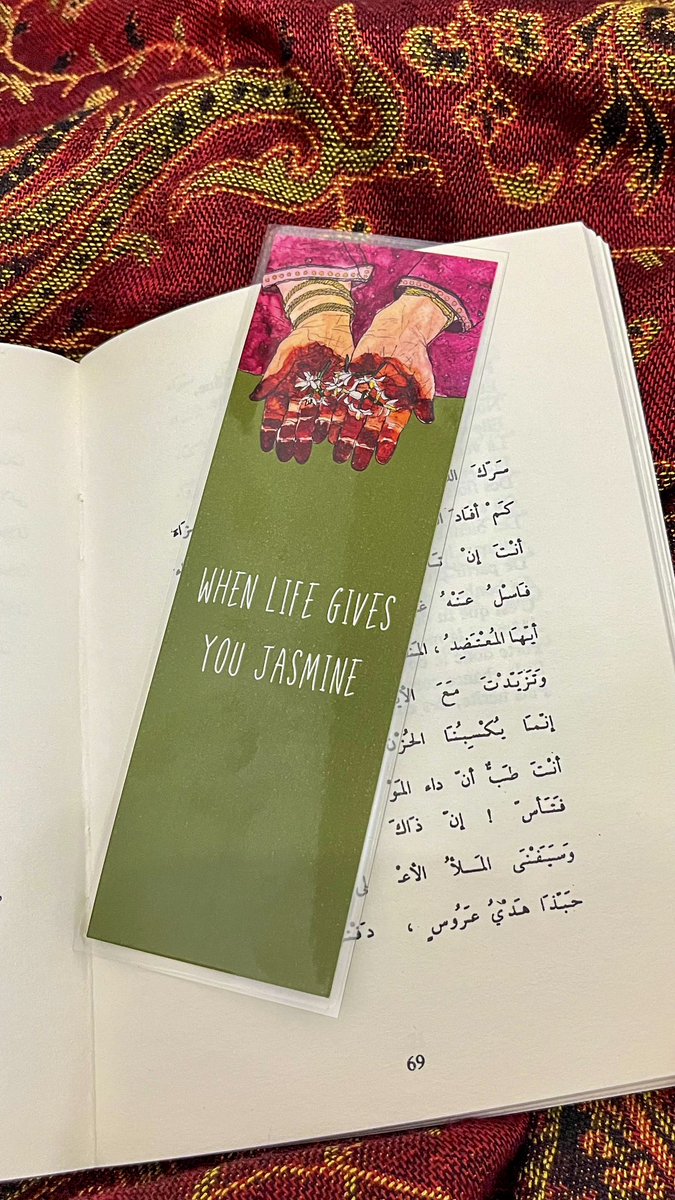 WHEN LIFE GIVES
YOU JASMINE
مَرَّكَ
كَمْ أفَادَ
أنْتَ إنْ
فَاسْلُ عَنْهُ
أيّهَا المُعْتَضِدُ ،
وَتَزَيّدْتَ مَعَ
إنّمَا يُكْسِبُنَا الحُزْنَ
أنْتَ طَبٌّ أنّ داء المَوْ
فَتَأسّ ! إنّ ذَاكَ
وَسَيَفْنَى المَلأُ الأعْ
حَبّذَا هَدْيُ عَرُوسٍ ،
69